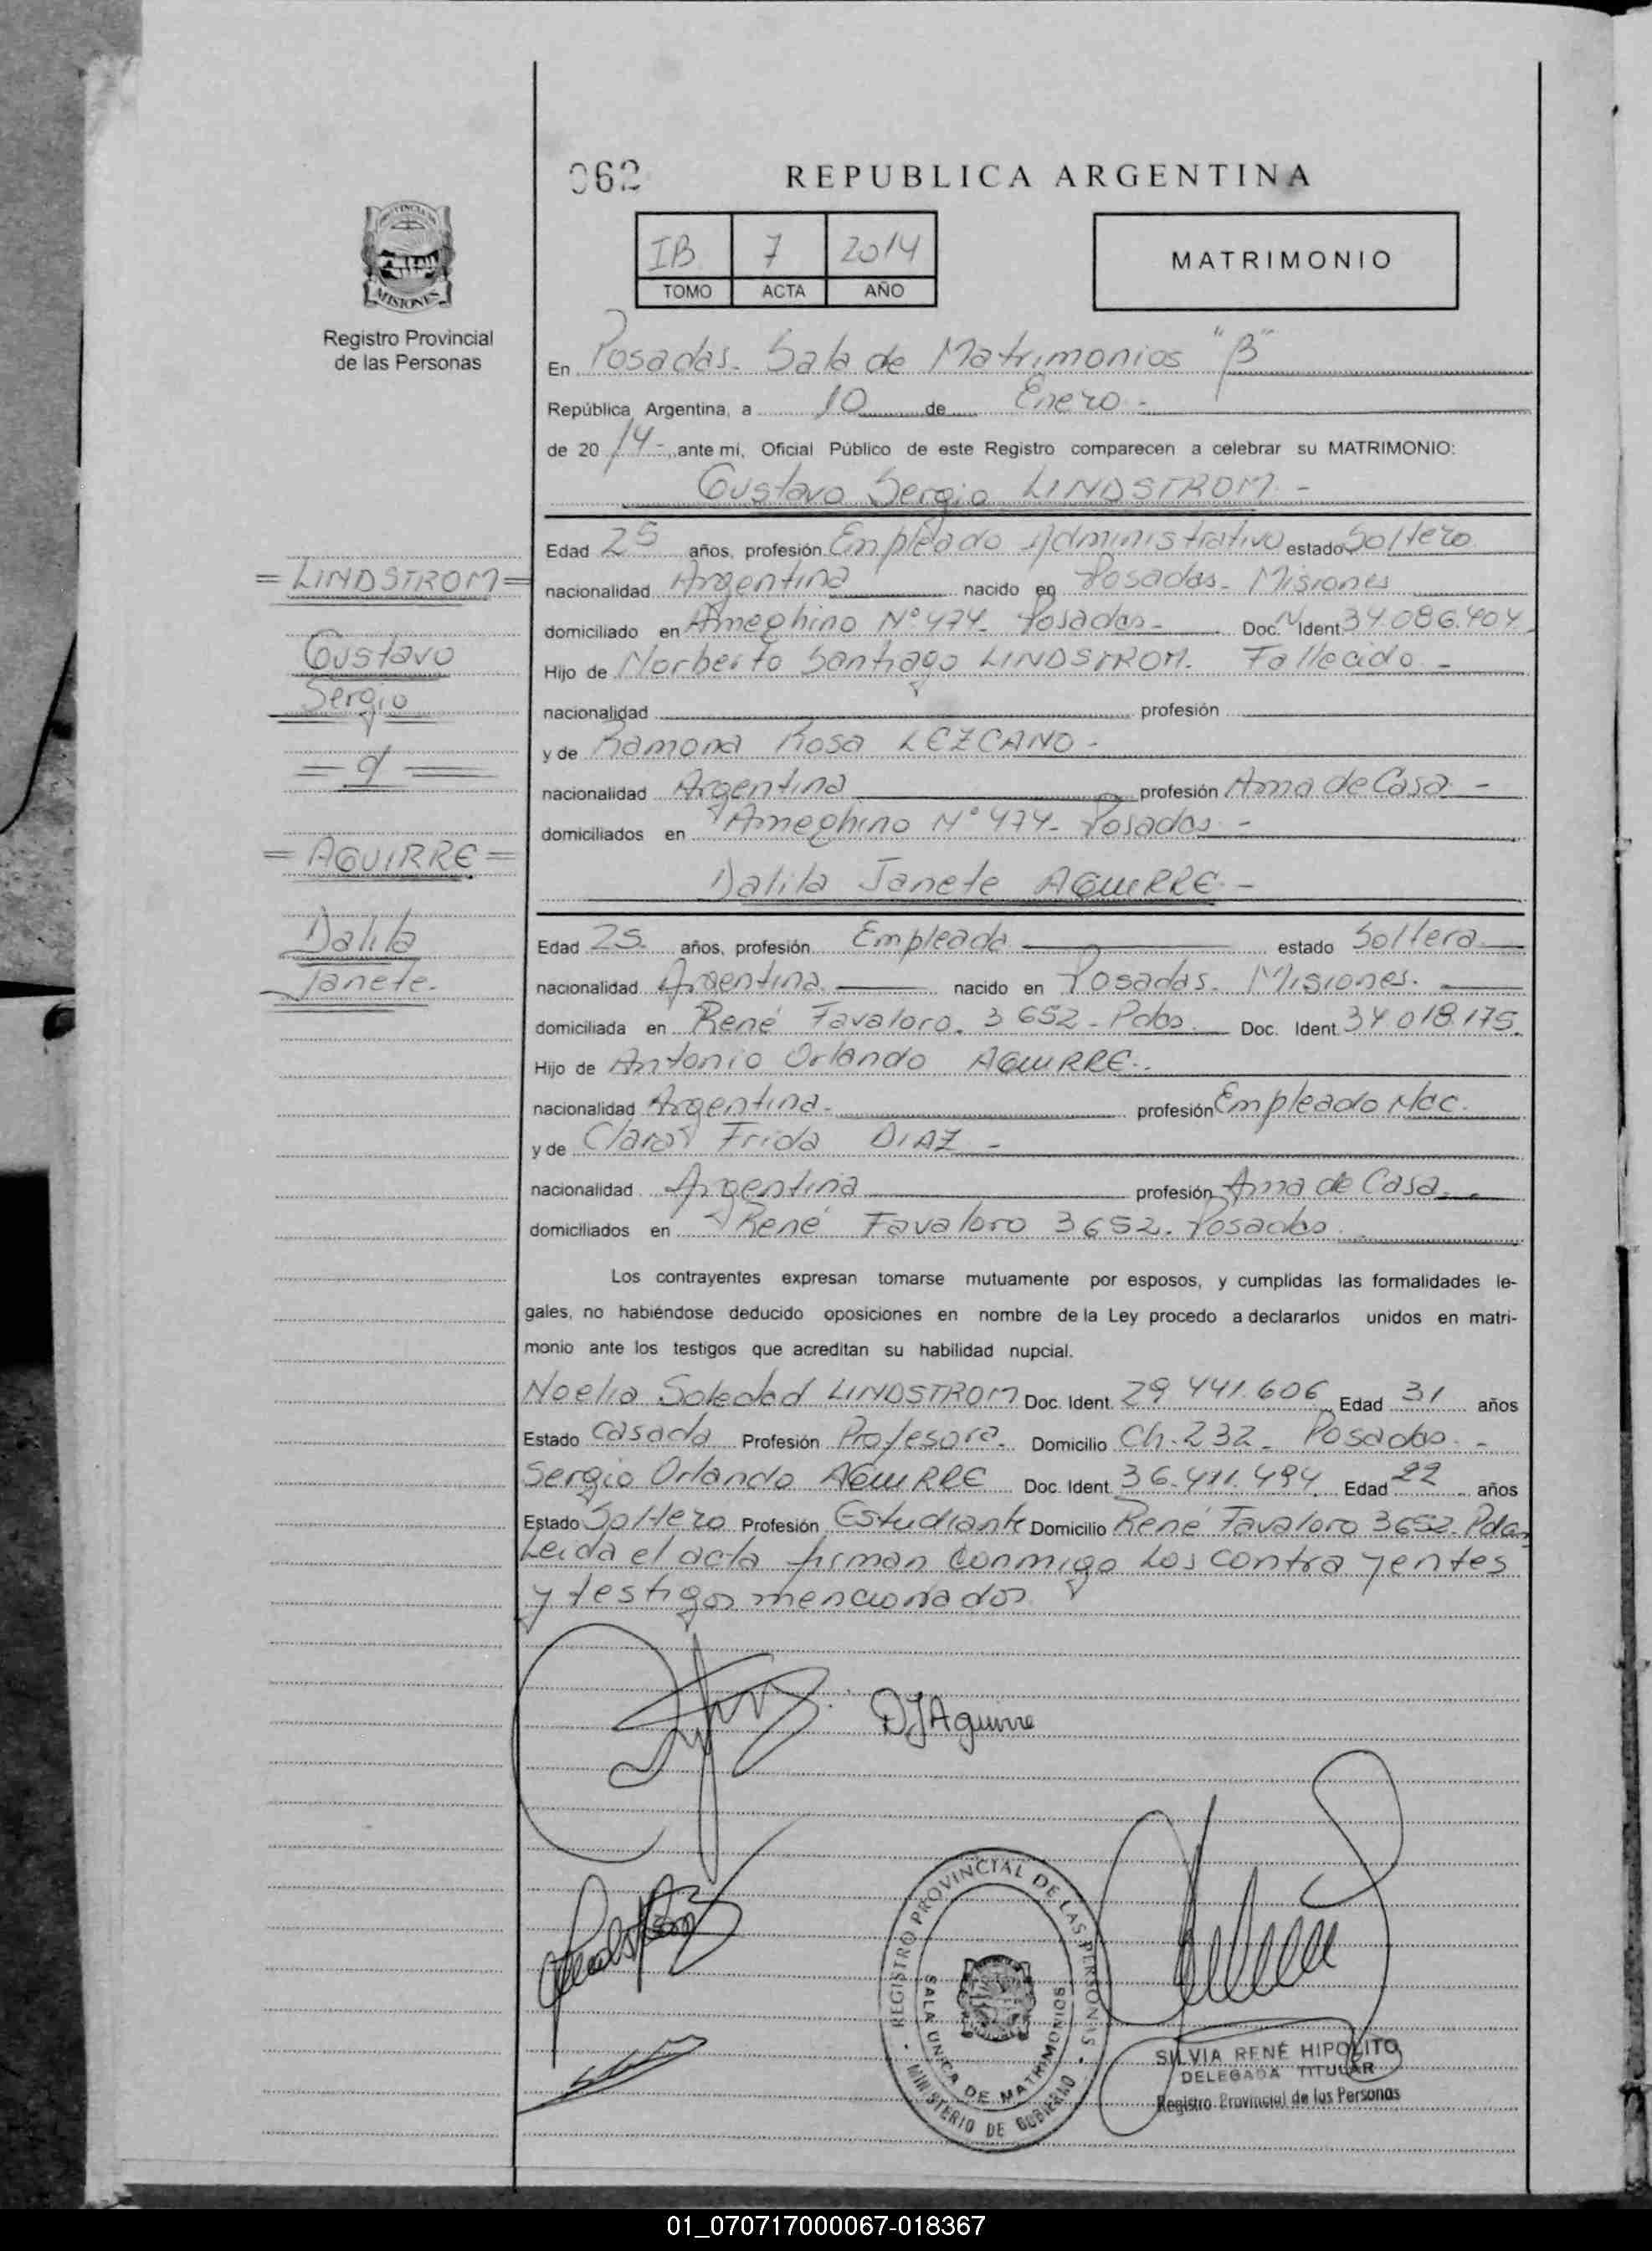 062
REPUBLICA ARGENTINA
PROVINCIA DE
MISIONES
IB 7 2014
TOMO ACTA AÑO
MATRIMONIO
Registro Provincial
de las Personas
En Posadas. Sala de Matrimonios "B"
República Argentina, a 10 de Enero -
de 20 14 - ante mi, Oficial Público de este Registro comparecen a celebrar su MATRIMONIO:
Gustavo Sergio LINDSTROM -
Edad 25 años, profesión Empleado Administrativo estado Soltero
= LINDSTROM =
nacionalidad Argentina nacido en Posadas - Misiones
domiciliado en Ameghino N° 474 - Posadas - Doc. Ident. 34.086.404
Gustavo
Hijo de Norberto Santiago LINDSTROM. Fallecido -
Sergio
nacionalidad profesión
y de Ramona Rosa LEZCANO -
nacionalidad Argentina profesión Ama de Casa -
domiciliados en Ameghino N° 474 - Posadas -
= AGUIRRE =
Dalila Janete AGUIRRE -
Dalila
Edad 25. años, profesión Empleada estado Soltera
Janete.
nacionalidad Argentina nacido en Posadas. Misiones.
domiciliada en René Favaloro. 3652 - Pdas Doc. Ident. 34.018.175
Hijo de Antonio Orlando AGUIRRE.
nacionalidad Argentina. profesión Empleado Nac.
y de Clara Frida DIAZ -
nacionalidad Argentina profesión Ama de Casa.
domiciliados en René Favaloro 3652. Posadas
Los contrayentes expresan tomarse mutuamente por esposos, y cumplidas las formalidades le-
gales, no habiéndose deducido oposiciones en nombre de la Ley procedo a declararlos unidos en matri-
monio ante los testigos que acreditan su habilidad nupcial.
Noelia Soledad LINDSTROM Doc. Ident. 29.441.606 Edad 31 años
Estado Casada Profesión Profesora. Domicilio Ch. 232 - Posadas. -
Sergio Orlando AGUIRRE Doc. Ident. 36.411.494 Edad 22 años
Estado Soltero Profesión Estudiante Domicilio René Favaloro 3652. Pdas
Leida el acta firman conmigo Los contrayentes
y testigos mencionados
DJAguirre
REGISTRO PROVINCIAL DE LAS PERSONAS
SALA UNICA DE MATRIMONIOS
MINISTERIO DE GOBIERNO
SILVIA RENÉ HIPOLITO
DELEGADA TITULAR
Registro Provincial de las Personas
01_070717000067-018367